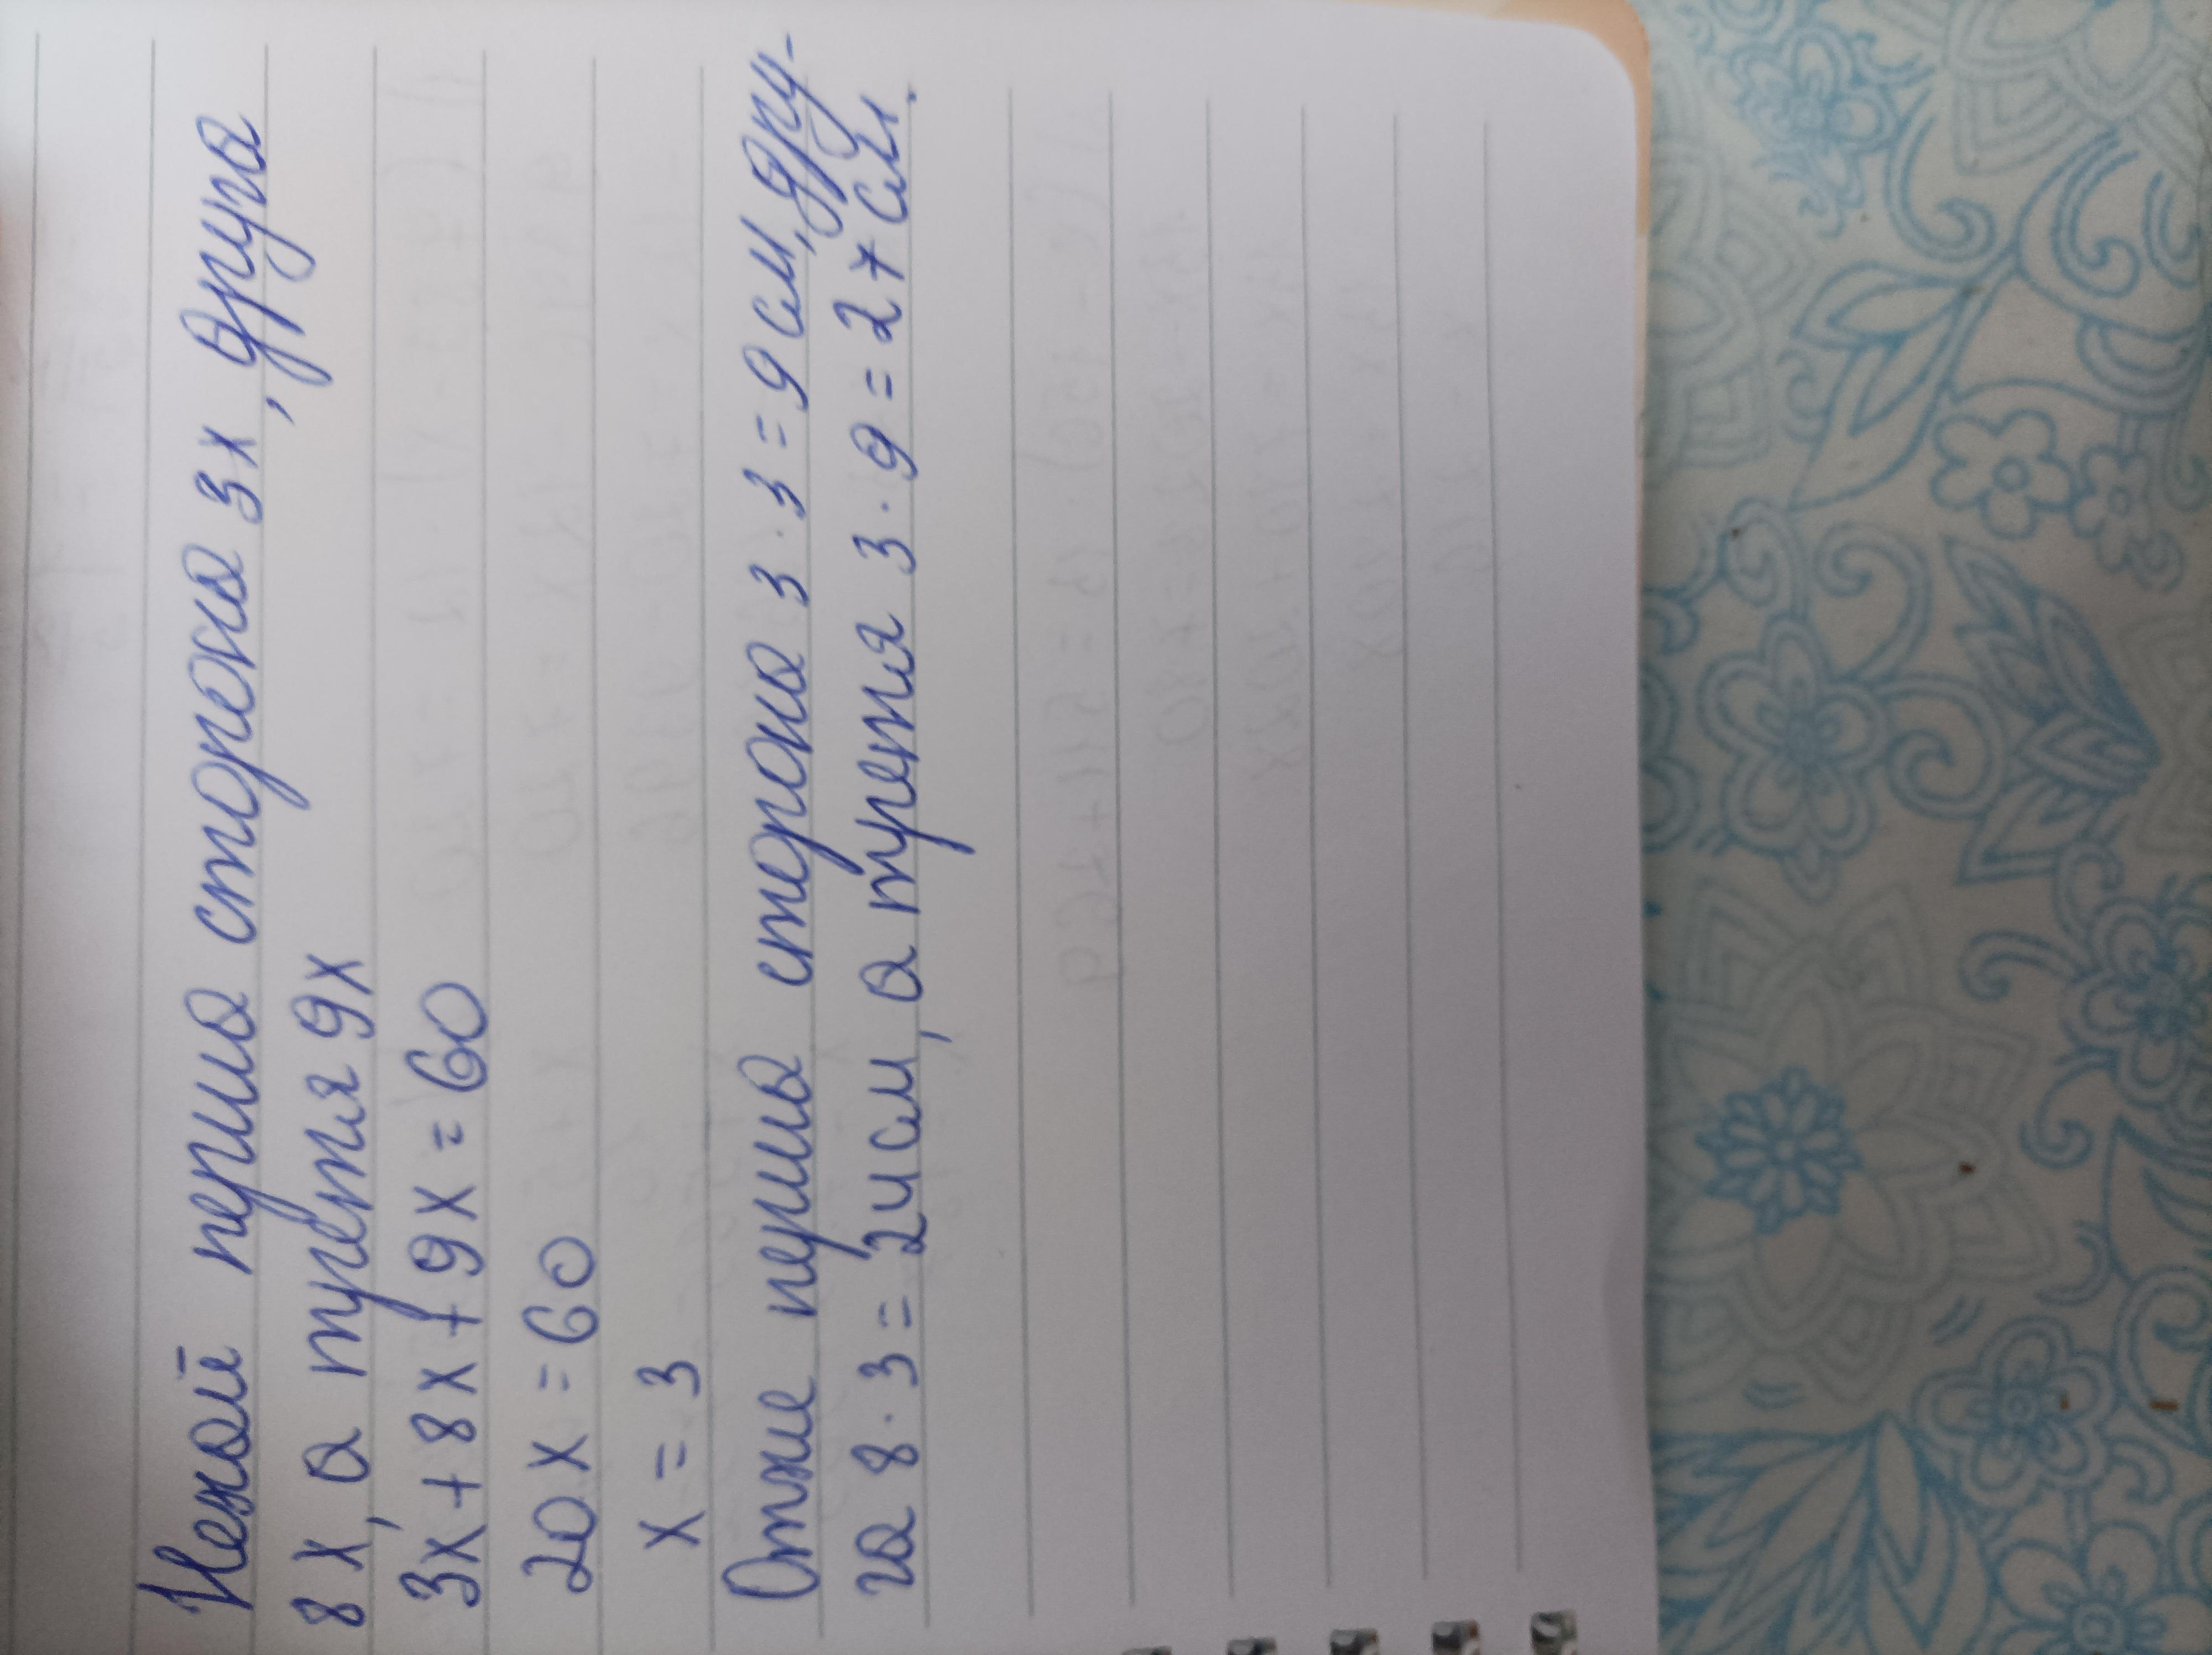 Нехай перша сторона 3х, друга
8х, а третя 9х
3х + 8х + 9х = 60
20х = 60
х = 3
Отже перша сторона 3 · 3 = 9 см, дру-
га 8 · 3 = 24 см, а третя 3 · 9 = 27 см.